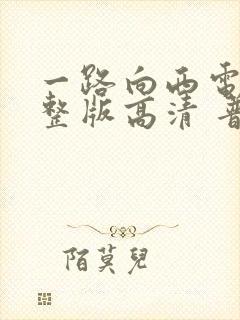 一路向西電
整版高清 普
陌莫兒